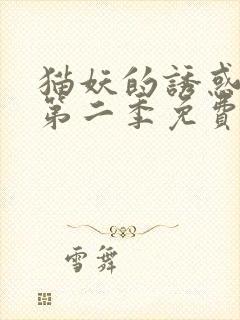 猫妖的誘惑
第二季免費
雪舞